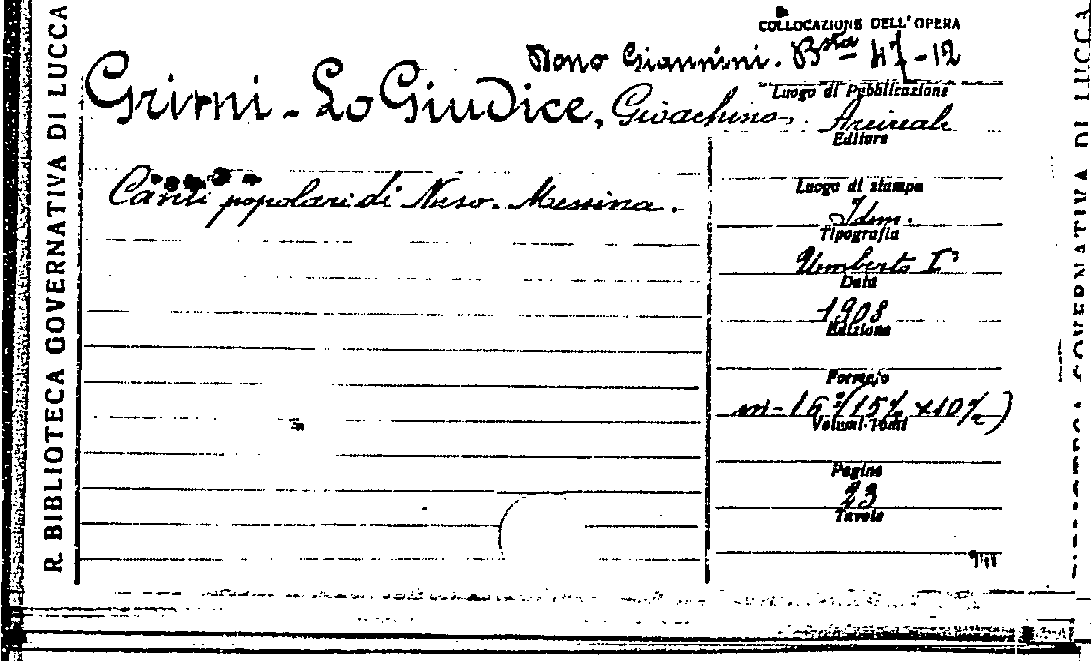 R. BIBLIOTECA GOVERNATIVA DI LUCCA
COLLOCAZIONE DELL'OPERA
Dono Giannini. Bsta 47-12
Grimi - Lo Giudice, Gioachino.
Canti popolari di Naso - Messina.
Luogo di Pubblicazione
Acireale
Editore
Luogo di stampa
Idem.
Tipografia
Umberto I°
Data
1908
Edizione
Formato
in-16° (15½ x 10½)
Volumi-Tomi
Pagine
23
Tavole